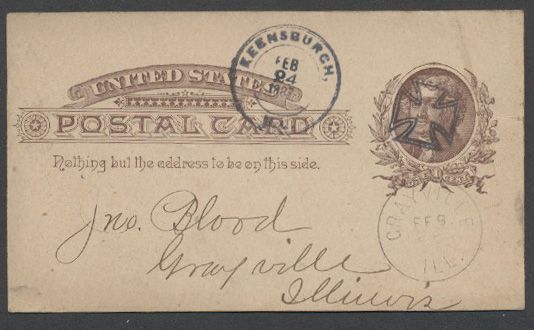 KEENSBURGH,
FEB
24
ILL.
UNITED STATES
POSTAL CARD
Nothing but the address to be on this side.
GRAYVILLE
FEB
ILL.
Jno. Blood
Grayville
Illinois